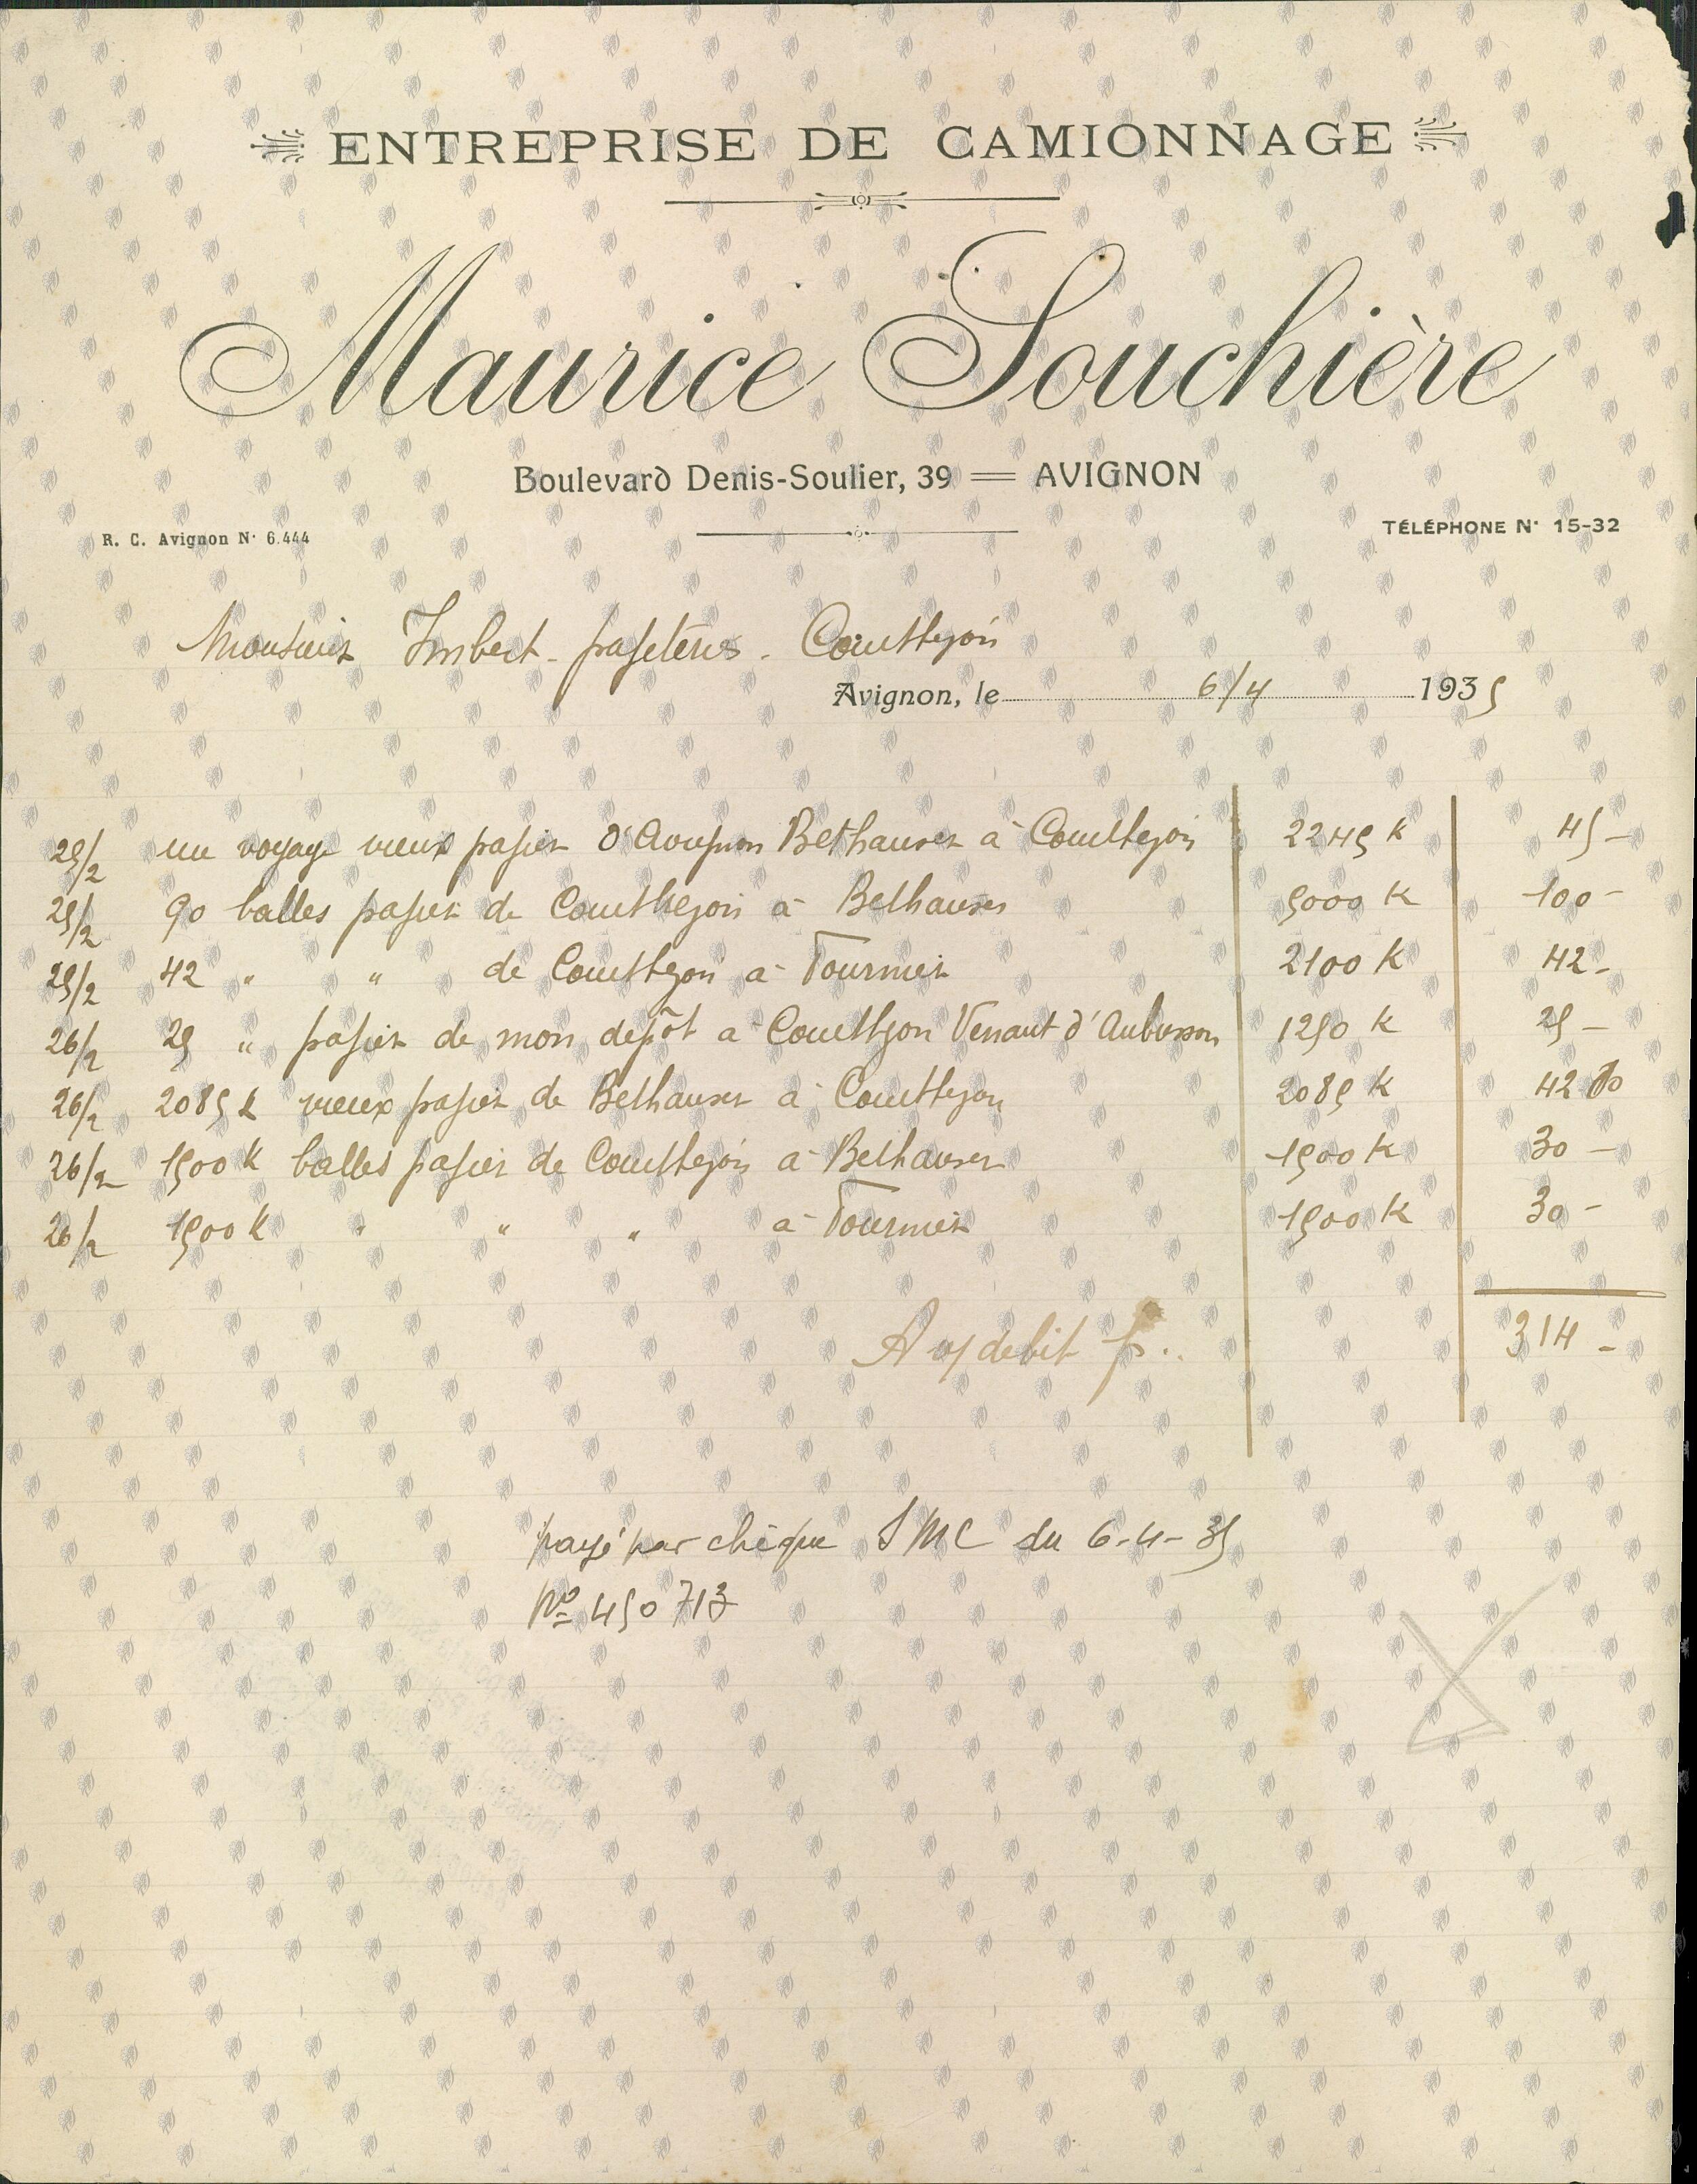 ENTREPRISE DE CAMIONNAGE
Maurice Souchière
Boulevard Denis-Soulier, 39 = AVIGNON
R. C. Avignon N° 6.444
TÉLÉPHONE N° 15-32
Monsieur Imbert - papeteries - Courthezon
Avignon, le 6/4 1935
25/2 un voyage vieux papier d'Avignon Bethauser à Courthezon 2245 k 45 -
25/2 90 balles papier de Courthezon à Bethauser 5000 K 100 -
25/2 42 " " de Courthezon à Fournier 2100 K 42 -
26/2 25 " papier de mon depôt a Courthezon Venant d'Aubusson 1250 K 25 -
26/2 2085 k vieux papier de Bethauser à Courthezon 2085 K 42
26/2 1500 K balles papier de Courthezon a Bethauser 1500 K 30 -
26/2 1500 K " " " a Fournier 1500 K 30 -
debit 314 -
payé par chèque SMC du 6-4-35
No 450713